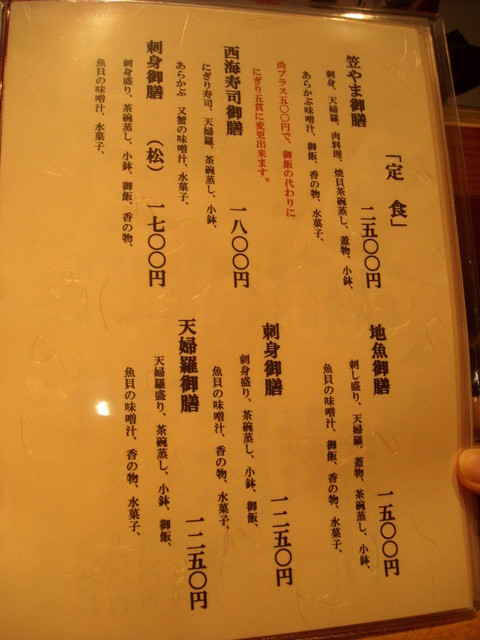 「定 食」
笠やま御膳 二五〇〇円
刺身、天婦羅、肉料理、焼貝茶碗蒸し、蓋物、小鉢、
あらかぶ味噌汁、御飯、香の物、水菓子、
尚プラス五〇〇円で、御飯の代わりに
にぎり五貫に変更出来ます。
西海寿司御膳 一八〇〇円
にぎり寿司、天婦羅、茶碗蒸し、小鉢、
あらかぶ 又蟹の味噌汁、水菓子、
刺身御膳 (松) 一七〇〇円
刺身盛り、茶碗蒸し、小鉢、御飯、香の物、
魚貝の味噌汁、水菓子、
地魚御膳 一五〇〇円
刺し盛り、天婦羅、蓋物、茶碗蒸し、小鉢、
魚貝の味噌汁、御飯、香の物、水菓子、
刺身御膳 一二五〇円
刺身盛り、茶碗蒸し、小鉢、御飯、
魚貝の味噌汁、香の物、水菓子、
天婦羅御膳 一二五〇円
天婦羅盛り、茶碗蒸し、小鉢、御飯、
魚貝の味噌汁、香の物、水菓子、